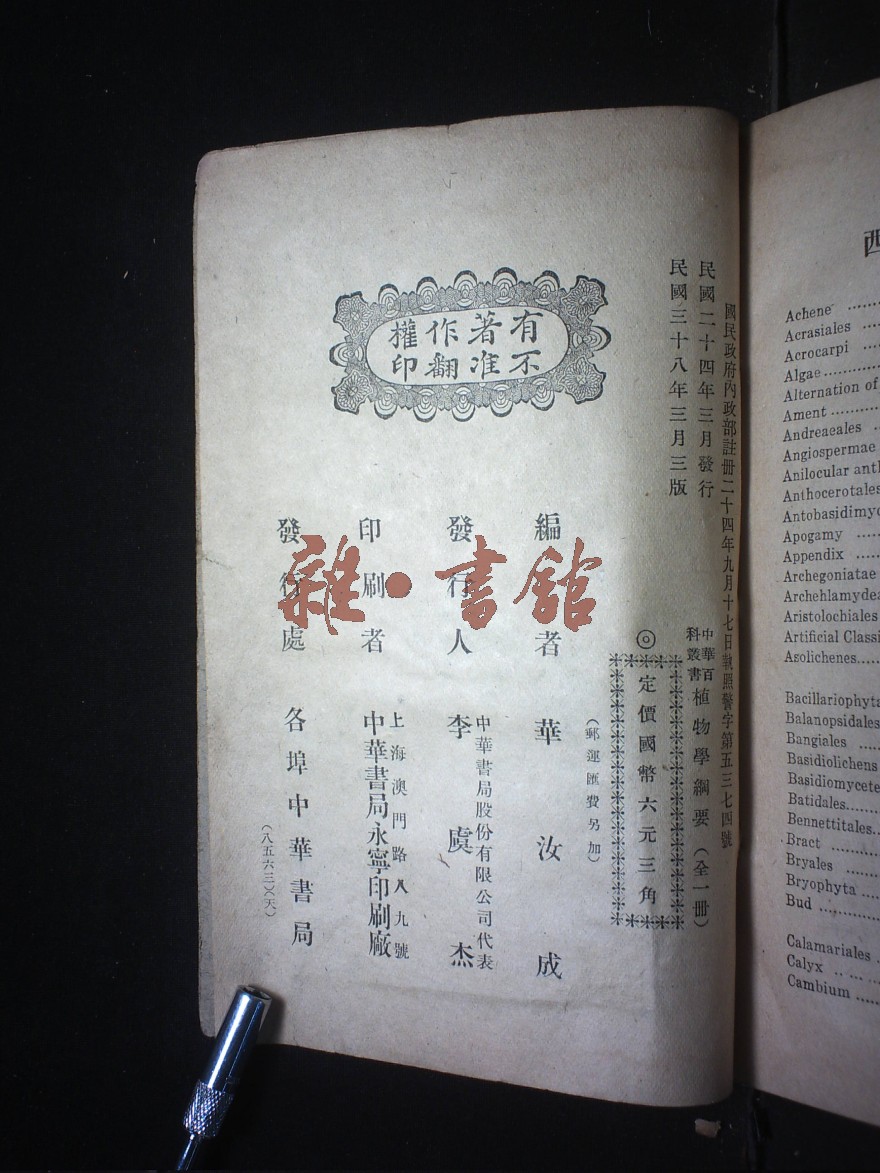 國民政府內政部註冊二十四年九月十七日執照警字第五三七四號
民國二十四年三月發行
民國三十八年三月三版
中華百科叢書 植物學綱要（全一冊）
◎定價國幣六元三角
（郵運匯費另加）
有著作權
不准翻印
編者 華汝成
發行人 中華書局股份有限公司代表 李虞杰
印刷者 上海澳門路八九號 中華書局永寧印刷廠
發行處 各埠中華書局
（八五六三）（天）
雜·書館
西
Achene
Acrasiales
Acrocarpi
Algae
Alternation of
Ament
Andreaeales
Angiospermae
Anilocular ant
Anthocerotales
Antobasidimyc
Apogamy
Appendix
Archegoniatae
Archehlamydea
Aristolochiales
Artificial Classi
Asolichenes
Bacillariophyta
Balanopsidales
Bangiales
Basidiolichens
Basidiomycete
Batidales
Bennettitales
Bract
Bryales
Bryophyta
Bud
Calamariales
Calyx
Cambium